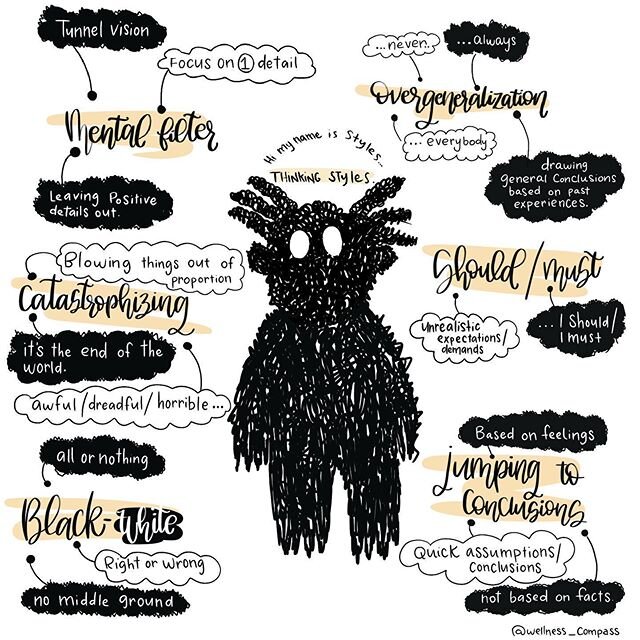 Tunnel vision
Focus on 1 detail
Mental filter
Leaving Positive
details out.
...never..
...always
Overgeneralization
...everybody
drawing
general Conclusions
based on past
experiences.
Hi my name is Styles..
THINKING STYLES
Blowing things out of
proportion
Catastrophizing
it's the end of the
world.
awful/dreadful/horrible...
Should/must
Unrealistic
expectations/
demands
...I Should/
I must
all or nothing
Black-white
Right or wrong
no middle ground
Based on feelings
Jumping to
Conclusions
Quick assumptions/
Conclusions
not based on facts
@wellness_Compass